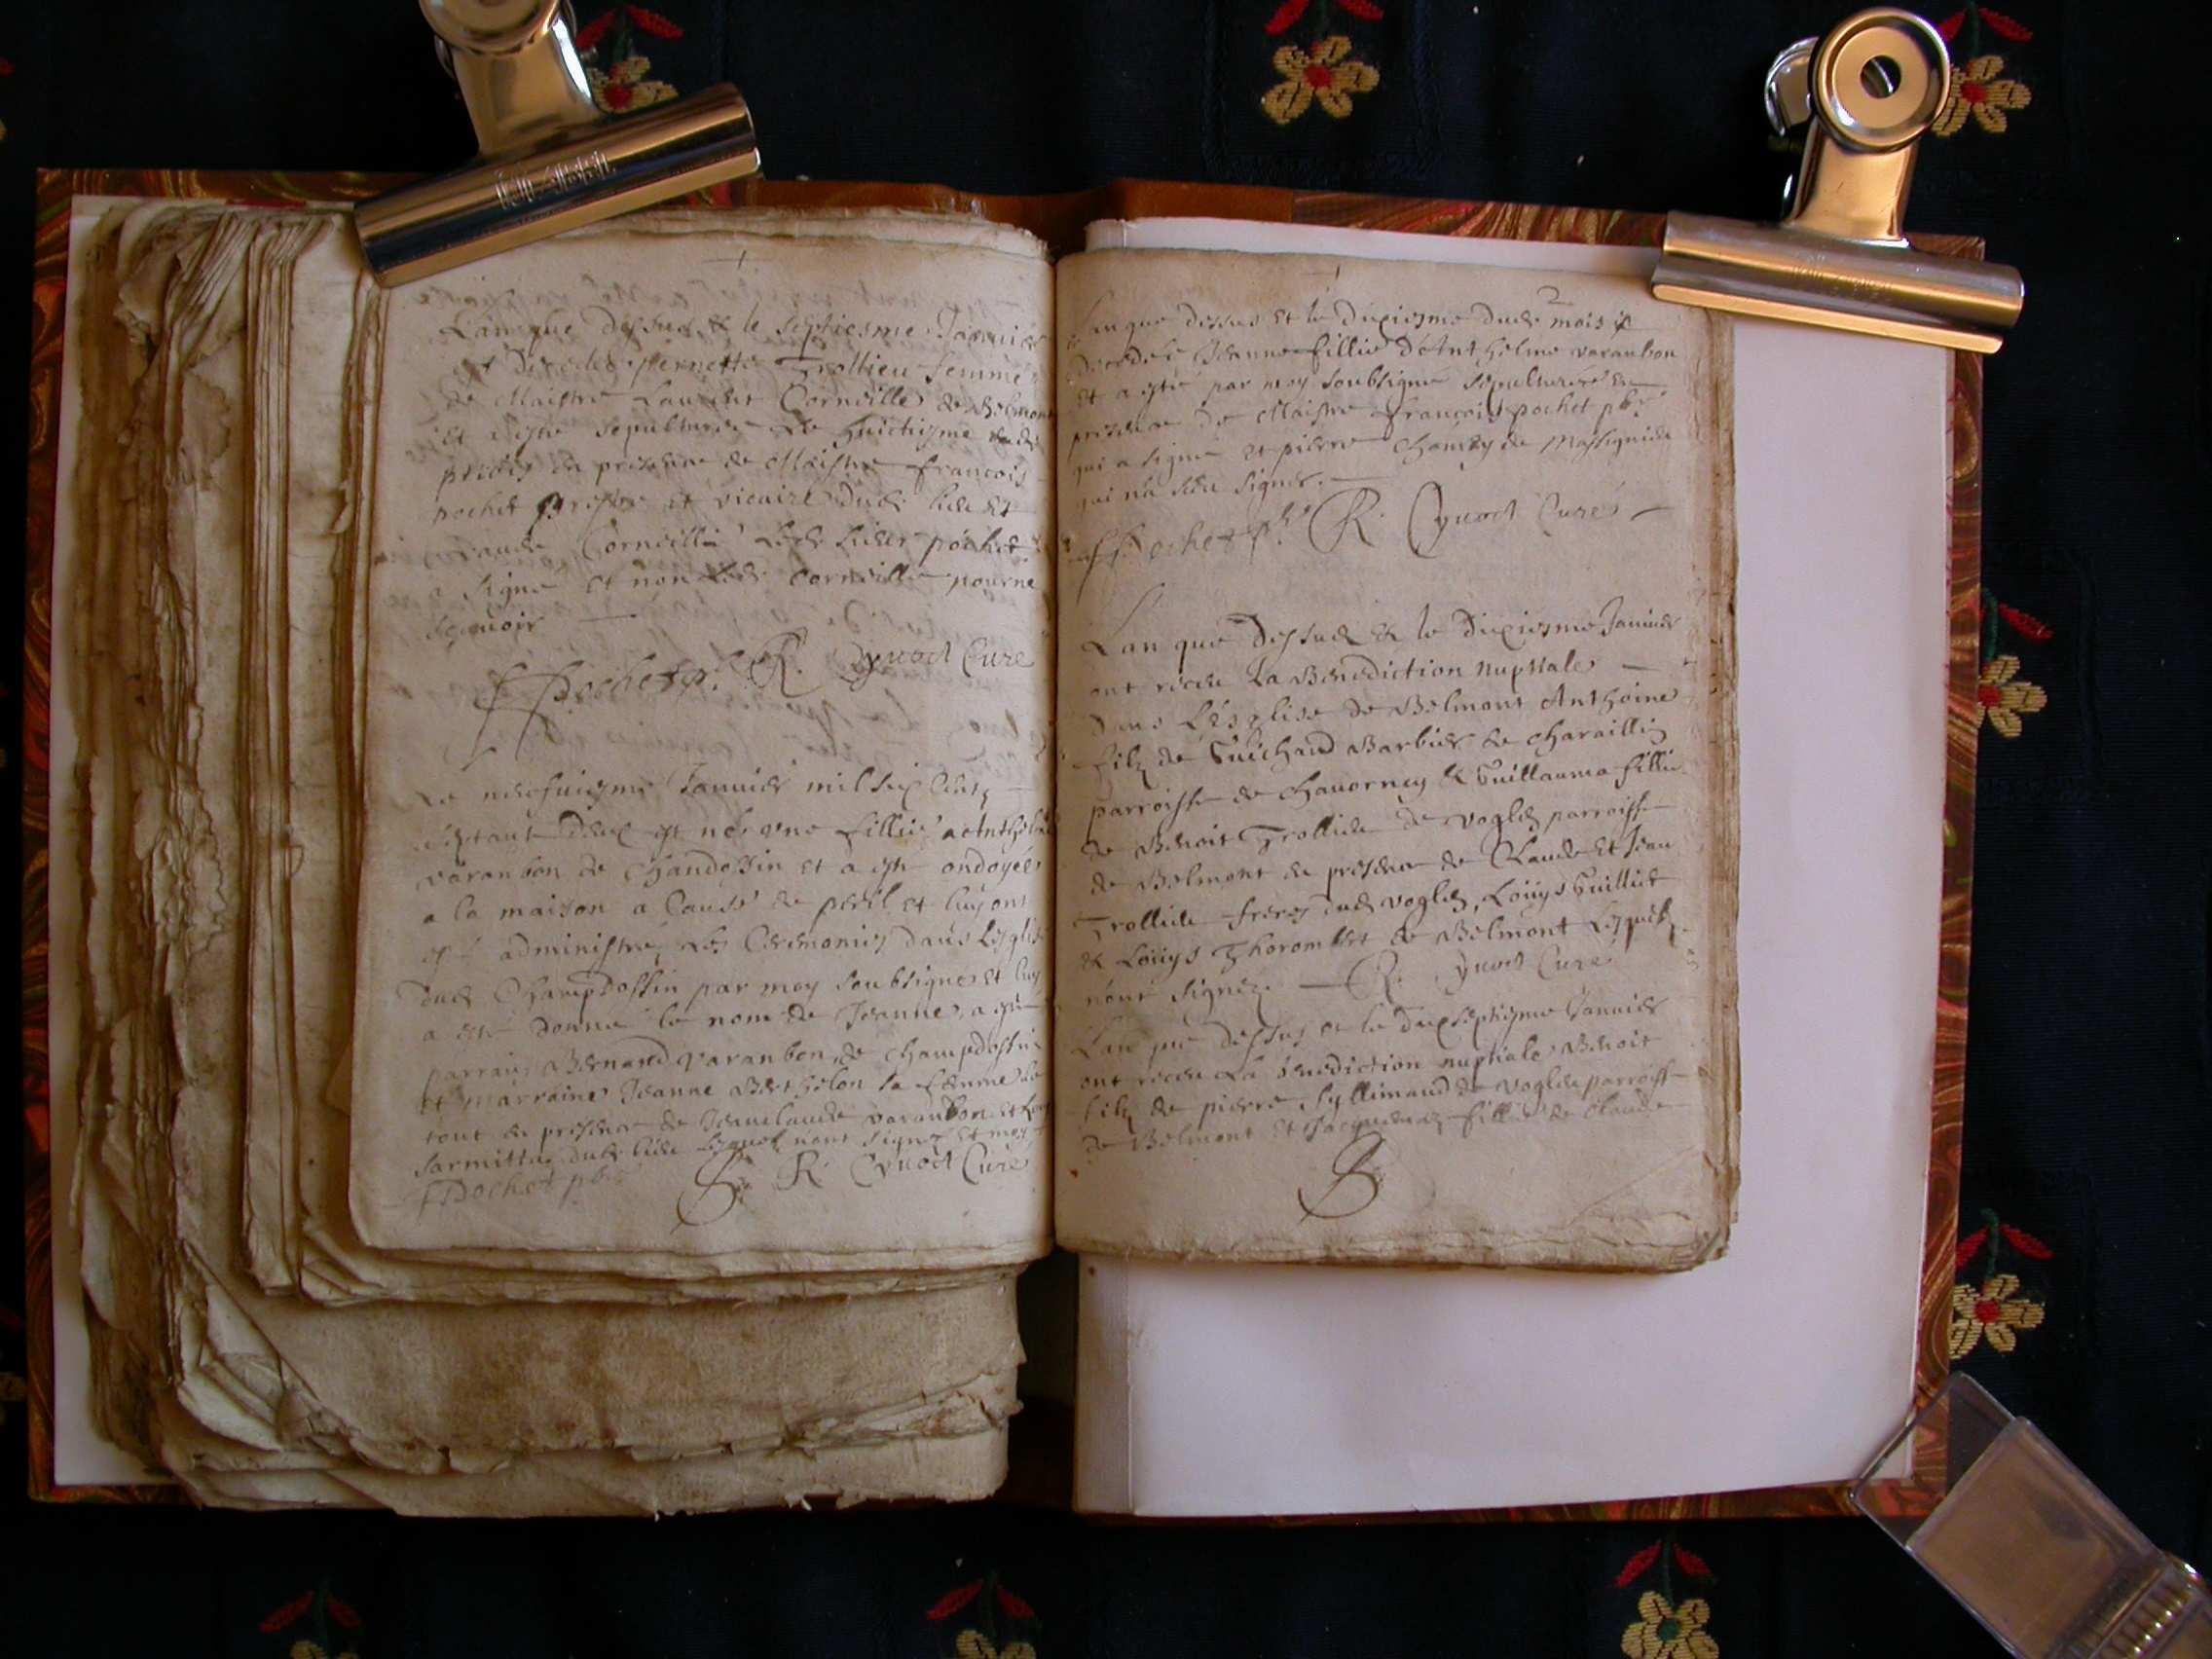 Lan que dessus & le septiesme Januier
est decedee pernette Trollieu femme
de Maistre Laurent Corneille de Belmont
et a este sepulturee Le huictiesme dud.
en presence de Maistre francois
pochet prestre et vicaire dud. lieu et
Claude Corneille led. sieur pochet
a signe et non led. Corneille pour ne
scauoir
f pochet p. R. Cynod Cure
Le neufuiesme Januier mil six Cents
septante deux est nee vne fillie a Anthelme
varanbon de Chandossin et a este ondoyée
a la maison a Cause de peril et luy ont
este administré les Ceremonies dans Lesglise
dud. Champdossin par moy soubsigne et luy
a esté donne le nom de Jeanne, a este
parrain Bernard varanbon de Champdossin
et marraine Jeanne Berthelon sa femme le
tout en presence de Jean claude varanbon et
sarmittaz dud. lieu Lesquels nont signe et moy
f Pochet pbr R. Cynod Cure
2
Lan que dessus et le dixiesme dud. mois est
decedee Jeanne fillie d'Anthelme varanbon
et a esté par moy soubsigne sepulturée en
presence de Maistre françois pochet pbr
qui a signe et pierre Chamby de Massignieu
qui n'a sceu signer.
f Pochet pbr R. Cynod Curé
Lan que dessus & le dixiesme Januier
ont receu La Benediction nuptiale
dans L'esglise de Belmont Anthoine
filz de Guichard Barbier de Charaillin
parroisse de Chauorney & Guillauma fillie
de Benoit Trollieu de voglen parroisse
de Belmont en presence de Claude et Jean
Trollieu freres dud. voglen, Loüys Guilliet
& Loüys Thorombet de Belmont Lesquels
n'ont signez. R. Cynod Curé
Lan que dessus et le dixseptiesme Januier
ont receu La benediction nuptiale Benoit
filz de pierre Syllimand de Voglen parroisse
de Belmont et Jacquemaz fillie de Claude